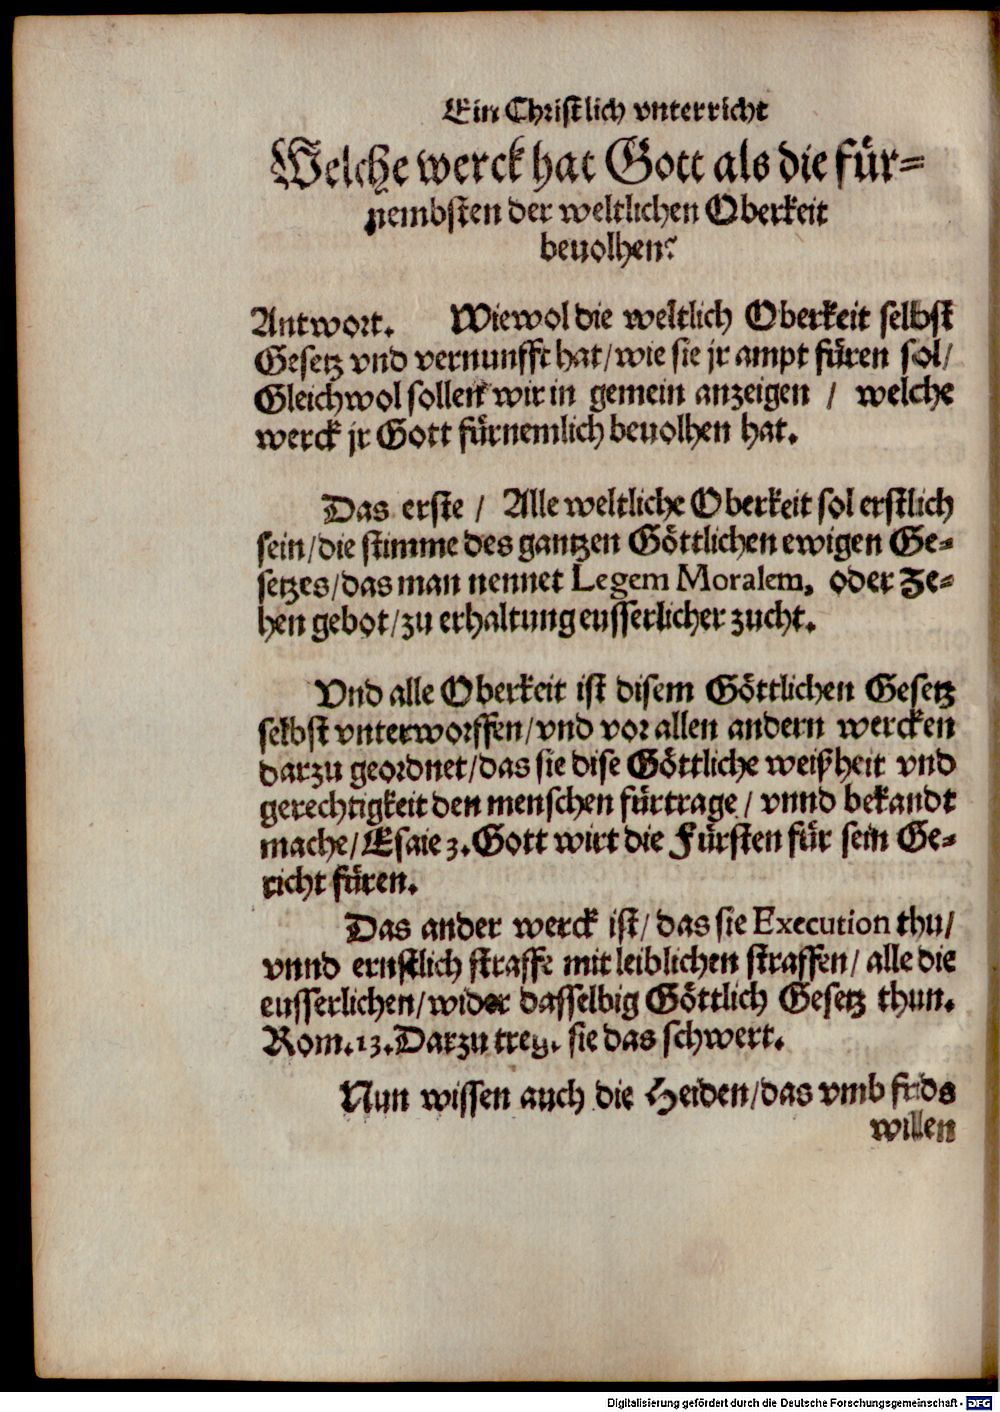 Ein Christlich vnterricht
Welche werck hat Gott als die für=
nembsten der weltlichen Oberkeit
beuolhen?
Antwort. Wiewol die weltlich Oberkeit selbst
Gesetz vnd vernunfft hat/ wie sie jr ampt füren sol/
Gleichwol sollen wir in gemein anzeigen / welche
werck jr Gott fürnemlich beuolhen hat.
Das erste / Alle weltliche Oberkeit sol erstlich
sein/ die stimme des gantzen Göttlichen ewigen Ge=
setzes/ das man nennet Legem Moralem, oder Ze=
hen gebot/ zu erhaltung eusserlicher zucht.
Vnd alle Oberkeit ist disem Göttlichen Gesetz
selbst vnterworffen/ vnd vor allen andern wercken
darzu geordnet/ das sie dise Göttliche weißheit vnd
gerechtigkeit den menschen fürtrage / vnnd bekandt
mache/ Esaie 3. Gott wirt die Fürsten für sein Ge=
richt füren.
Das ander werck ist/ das sie Execution thu/
vnnd ernstlich straffe mit leiblichen straffen/ alle die
eusserlichen/ wider dasselbig Göttlich Gesetz thun.
Rom. 13. Darzu treg. sie das schwert.
Nun wissen auch die Heiden/ das vmb frids
willen
Digitalisierung gefördert durch die Deutsche Forschungsgemeinschaft - DFG